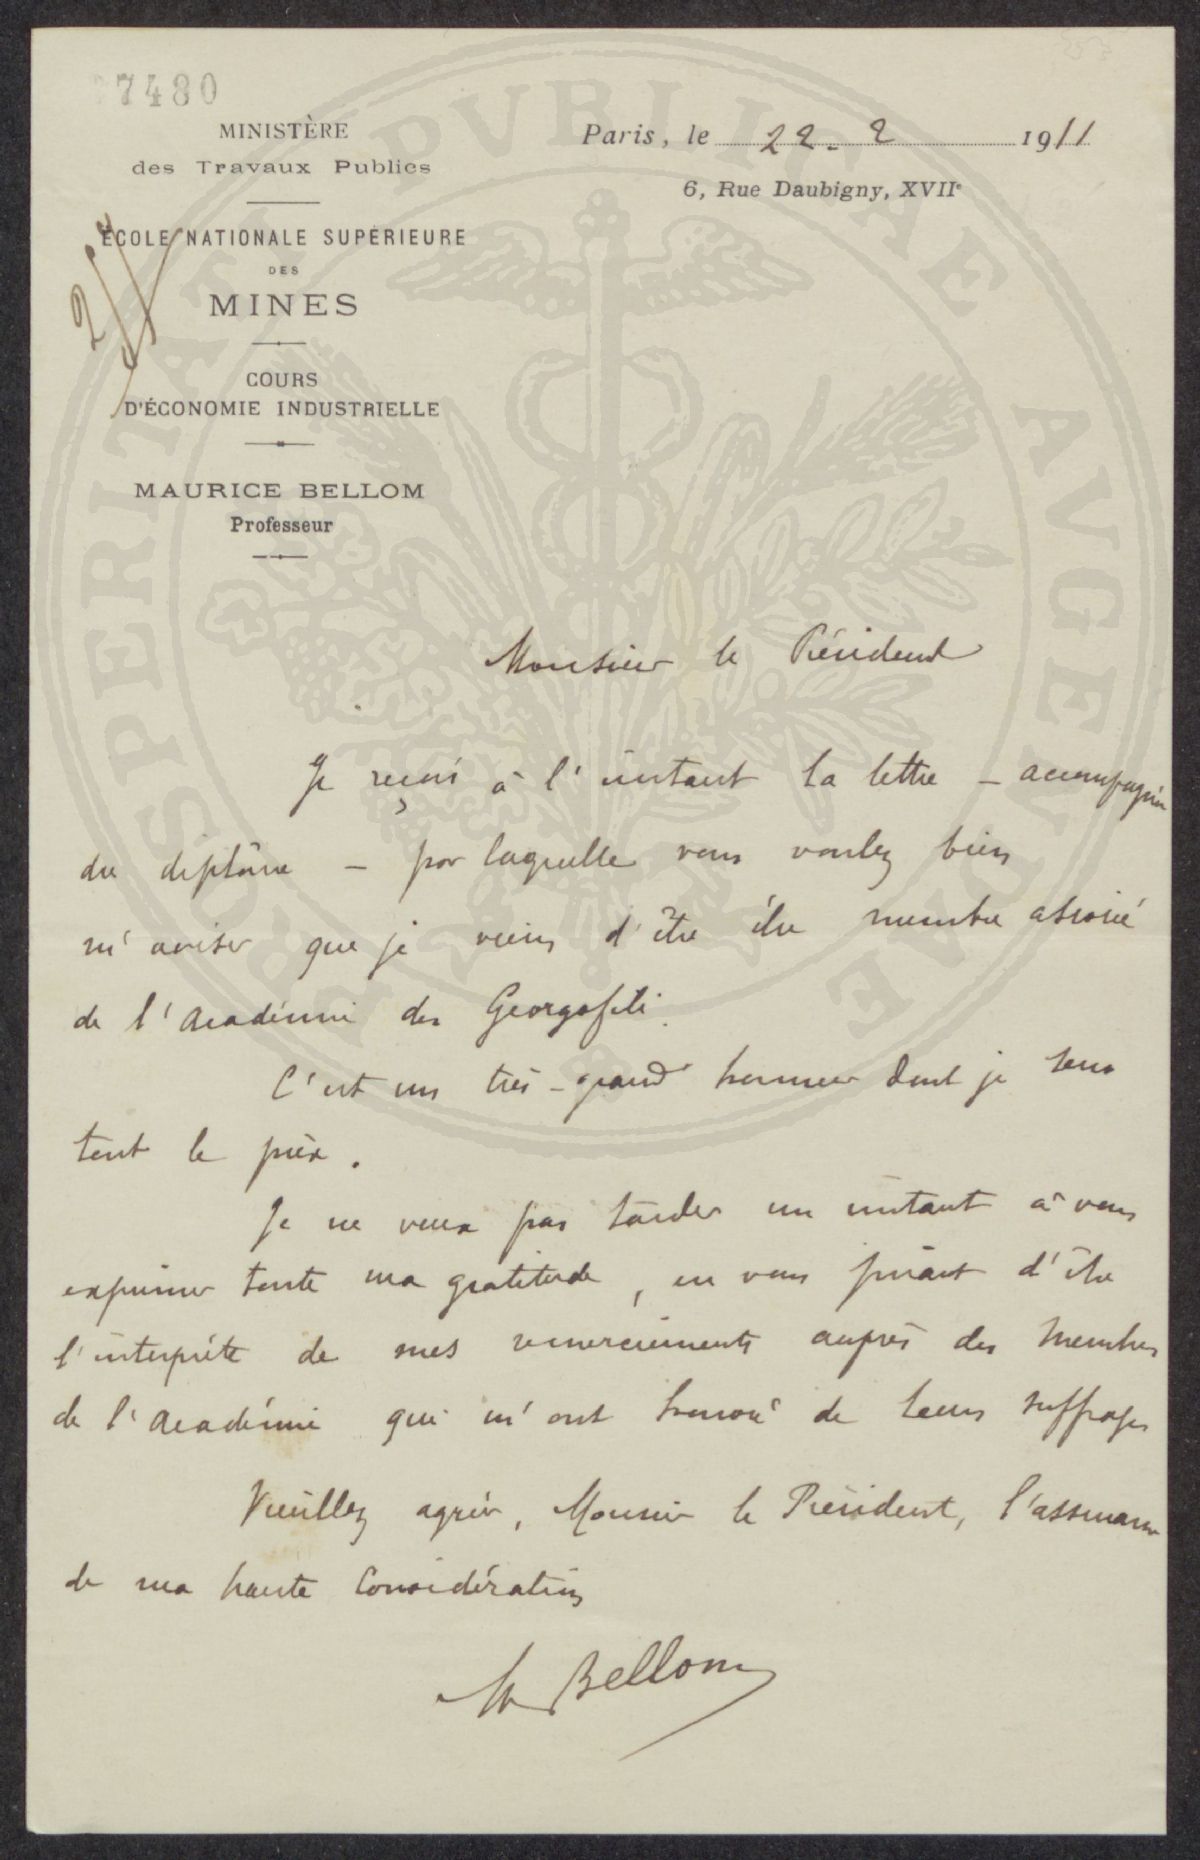 7480
MINISTÈRE
des Travaux Publics
ÉCOLE NATIONALE SUPÉRIEURE
DES
MINES
COURS
D'ÉCONOMIE INDUSTRIELLE
MAURICE BELLOM
Professeur
Paris, le 22. 2 1911
6, Rue Daubigny, XVIIe
Monsieur le Président
Je reçois à l'instant la lettre – accompagnée
du diplôme – par laquelle vous voulez bien
m'aviser que je viens d'être élu membre associé
de l'Académie des Georgofili.
C'est un très-grand honneur dont je sens
tout le prix.
Je ne veux pas tarder un instant à vous
exprimer toute ma gratitude, en vous priant d'être
l'interprète de mes remerciements auprès des Membres
de l'Académie qui m'ont honoré de leurs suffrages
Veuillez agréer, Monsieur le Président, l'assurance
de ma haute considération
M Bellom
PROSPERITATI PVBLICAE AVGENDAE